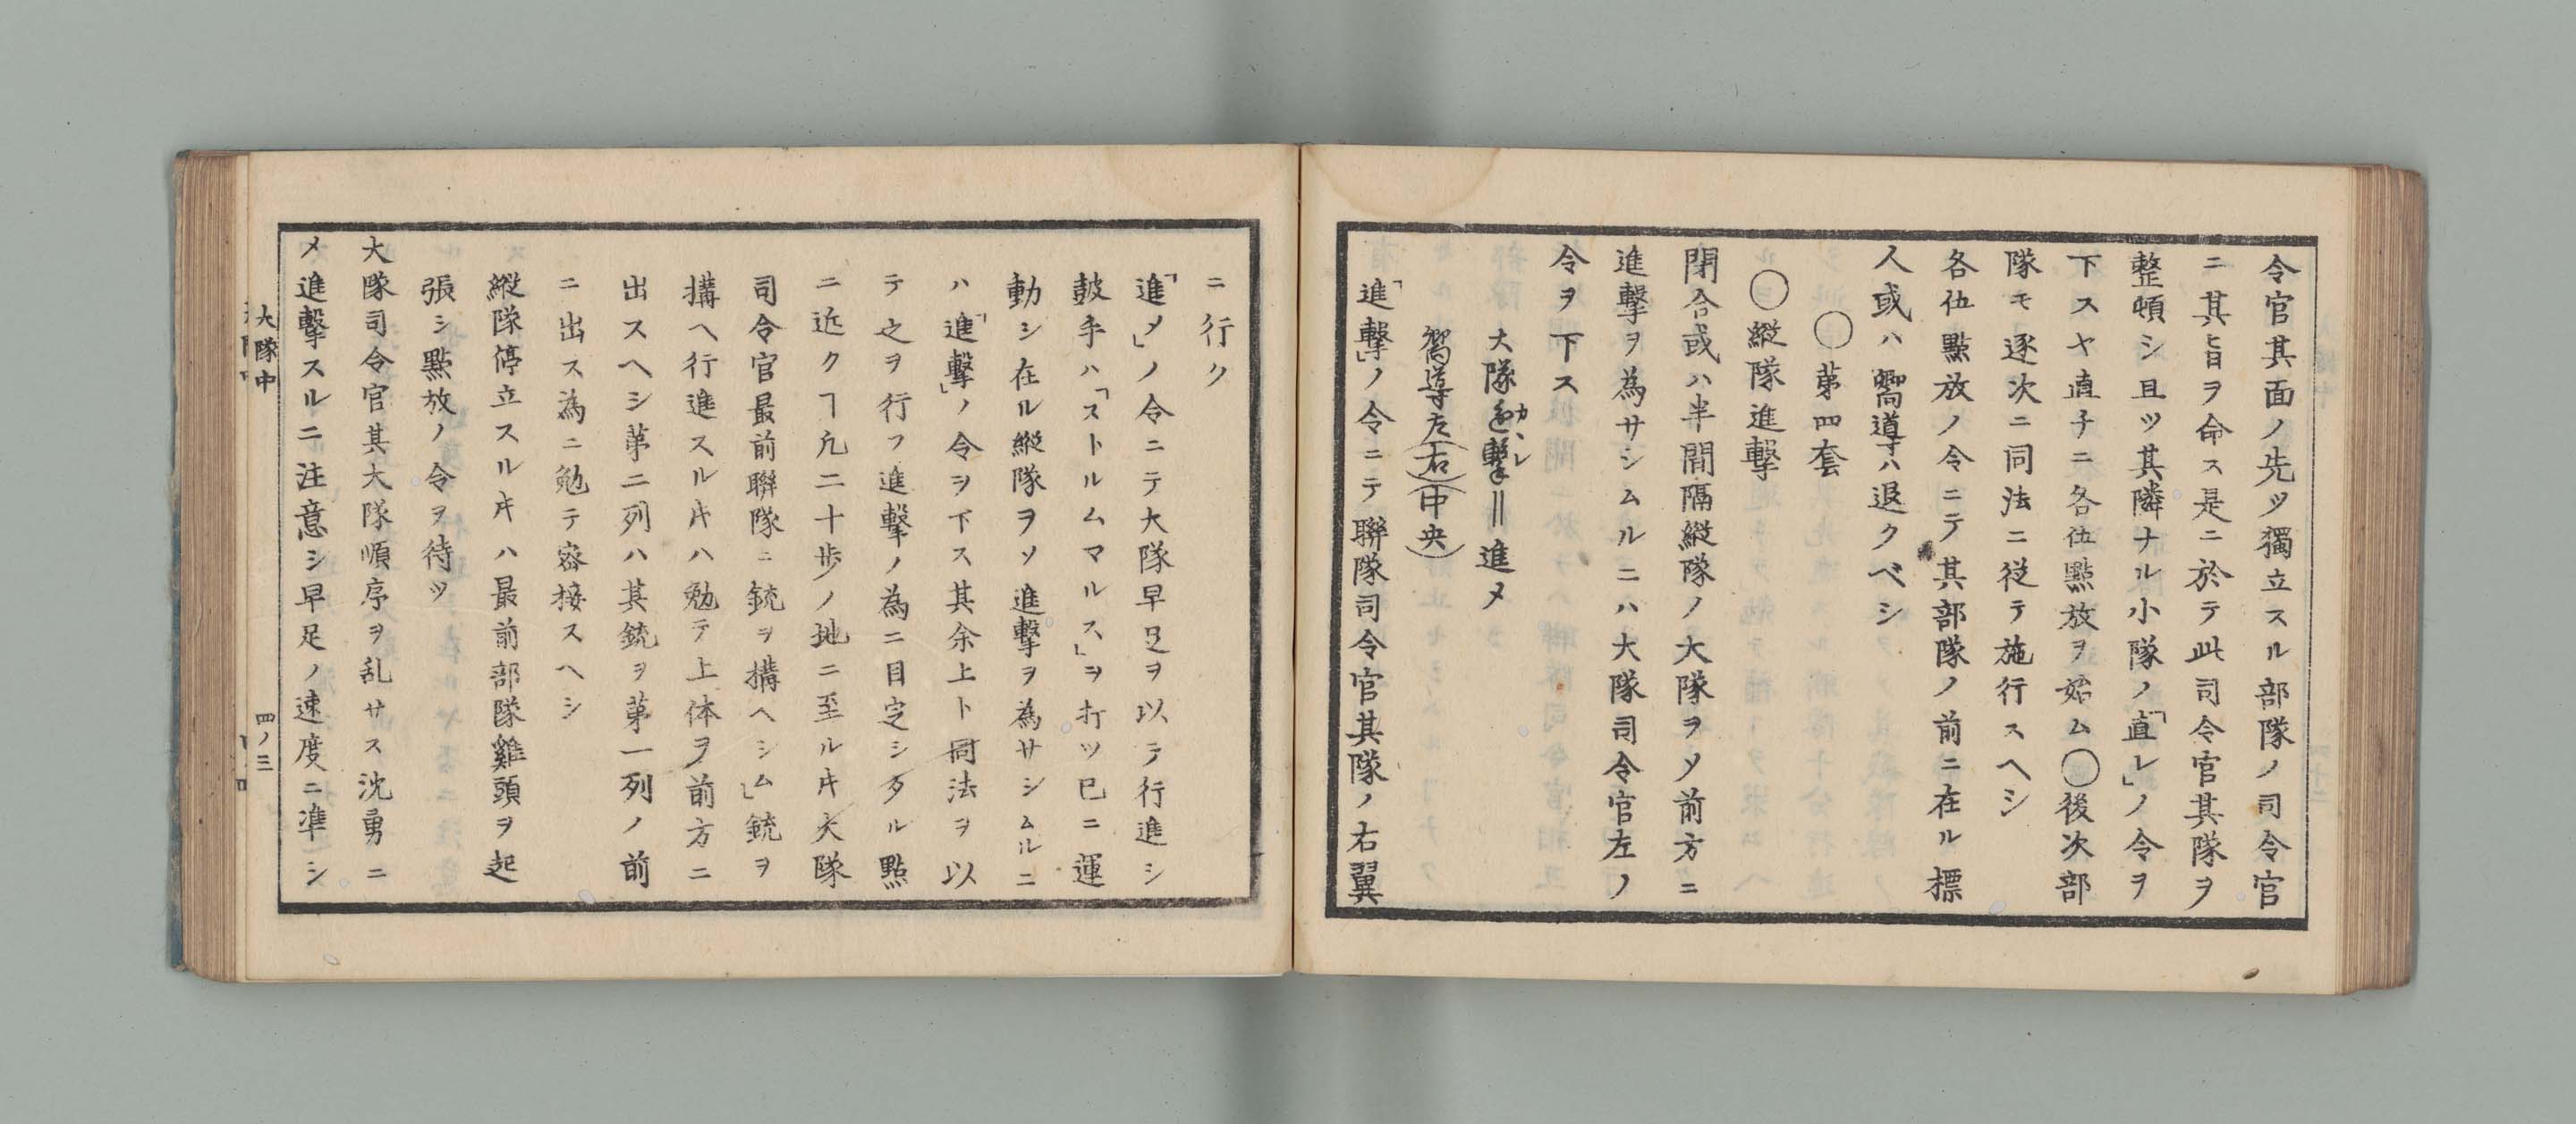 令官其面ノ先ツ獨立スル部隊ノ司令官
ニ其旨ヲ命ス是ニ於テ此司令官其隊ヲ
整頓シ且ツ其隣ナル小隊ノ「直レ」ノ令ヲ
下スヤ直チニ各伍點放ヲ始ム〇後次部
隊モ逐次ニ同法ニ従テ施行スヘシ
各伍點放ノ令ニテ其部隊ノ前ニ在ル標
人或ハ嚮導ハ退クベシ
〇第四套
〇縦隊進撃
閉合或ハ半間隔縦隊ノ大隊ヲソ前方ニ
進撃ヲ為サシムルニハ大隊司令官左ノ
令ヲ下ス
大隊 撃カヽレ‖進メ
嚮導左(右)(中央)
「進撃」ノ令ニテ聯隊司令官其隊ノ右翼
ニ行ク
「進メ」ノ令ニテ大隊早足ヲ以テ行進シ
鼓手ハ「ストルムマルス」ヲ打ツ已ニ運
動シ在ル縦隊ヲソ進撃ヲ為サシムルニ
ハ「進撃」ノ令ヲ下ス其余上ト同法ヲ以
テ之ヲ行フ進撃ノ為ニ目定シタル點
ニ近クヿ凡二十歩ノ地ニ至ル片大隊
司令官最前聯隊ニ銃ヲ搆ヘシム」銃ヲ
搆ヘ行進スル片ハ勉テ上体ヲ前方ニ
出スヘシ第二列ハ其銃ヲ第一列ノ前
ニ出ス為ニ勉テ密接スヘシ
縦隊停立スル片ハ最前部隊雞頭ヲ起
張シ點放ノ令ヲ待ツ
大隊司令官其大隊順序ヲ乱サス沈勇ニ
メ進撃スルニ注意シ早足ノ速度ニ凖シ
大隊中
四ノ三